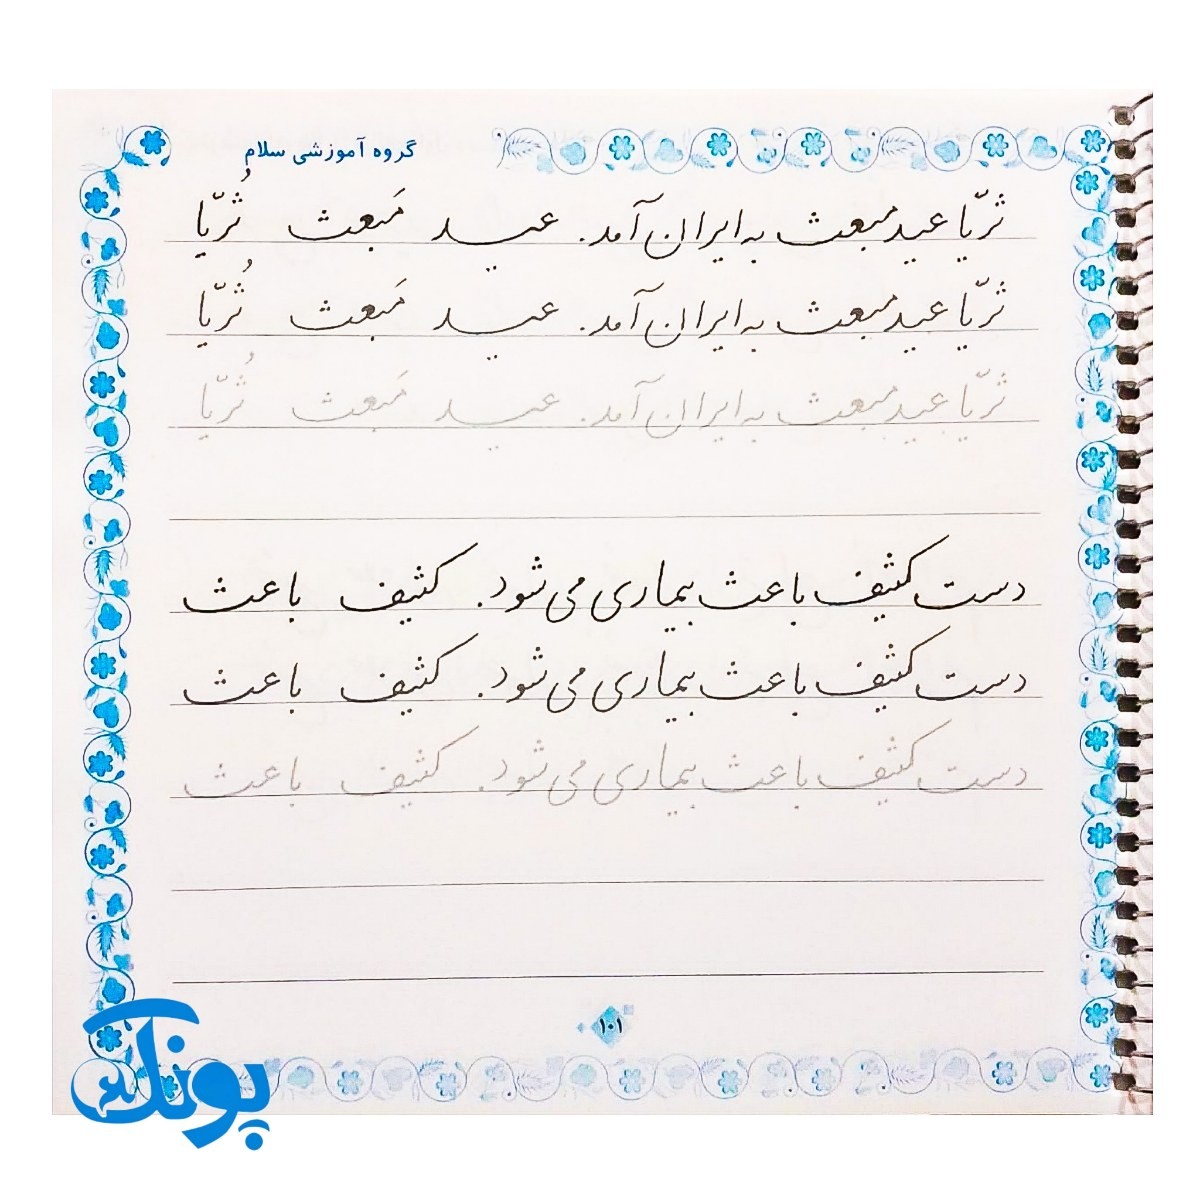 گروه آموزشی سلام
ثریّا عید مبعث به ایران آمد. عیـــد مَبعث ثُریّا
ثریّا عید مبعث به ایران آمد. عیـــد مَبعث ثُریّا
ثریّا عید مبعث به ایران آمد. عیـــد مَبعث ثُریّا
دست کثیف باعث بیماری می شود. کثیف باعث
دست کثیف باعث بیماری می شود. کثیف باعث
دست کثیف باعث بیماری می شود. کثیف باعث
۱۰۱
پونک